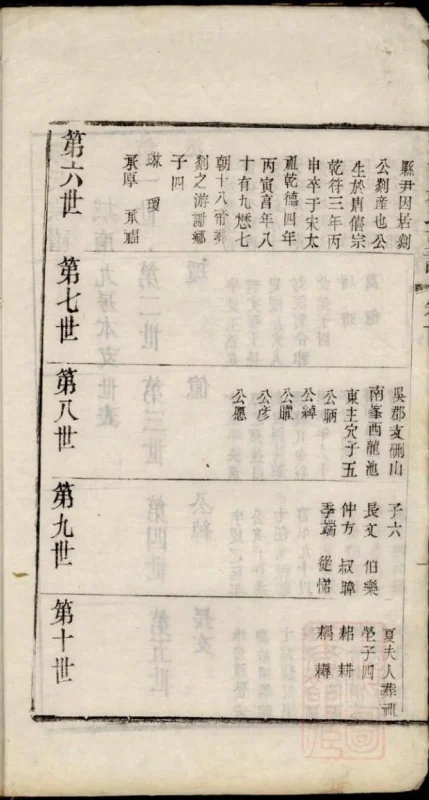 縣尹因居剡
公剡産也公
生於唐僖宗
乾符三年丙
申卒于宋太
祖乾德四年
丙寅享年八
十有九歷七
朝十八帝葬
剡之游謝鄉
子四
琳 瓊
承厚 承福
第六世
第七世
吳郡支硎山
南峯西龍池
東主穴子五
公
公綽
公
公彥
公愿
第八世
子六
長文 伯樂
仲方 叔
季端 從悌
第九世
夏夫人葬祖
塋子四
耜 耕
耦 耨
第十世